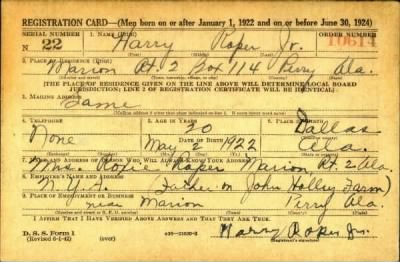 REGISTRATION CARD—(Men born on or after January 1, 1922 and on or before June 30, 1924)
SERIAL NUMBER 1. NAME (Print) ORDER NUMBER
N 22 Harry Roper Jr. 10614
2. PLACE OF RESIDENCE (Print)
Marion Rt 2 Box 114 Perry Ala.
[THE PLACE OF RESIDENCE GIVEN ON THE LINE ABOVE WILL DETERMINE LOCAL BOARD
JURISDICTION; LINE 2 OF REGISTRATION CERTIFICATE WILL BE IDENTICAL]
3. MAILING ADDRESS
Same
4. TELEPHONE 5. AGE IN YEARS 6. PLACE OF BIRTH
None 20 Dallas
DATE OF BIRTH
May 2 1922 Ala.
7. NAME AND ADDRESS OF PERSON WHO WILL ALWAYS KNOW YOUR ADDRESS
Mrs. Roper Marion Rt. 2 Ala.
8. EMPLOYER'S NAME AND ADDRESS
N. Y. A. (Father on John Holley Farm)
9. PLACE OF EMPLOYMENT OR BUSINESS
near Marion Perry Ala.
I AFFIRM THAT I HAVE VERIFIED ABOVE ANSWERS AND THAT THEY ARE TRUE.
D. S. S. Form 1
(Revised 6-1-42) (over)
Harry Roper Jr.